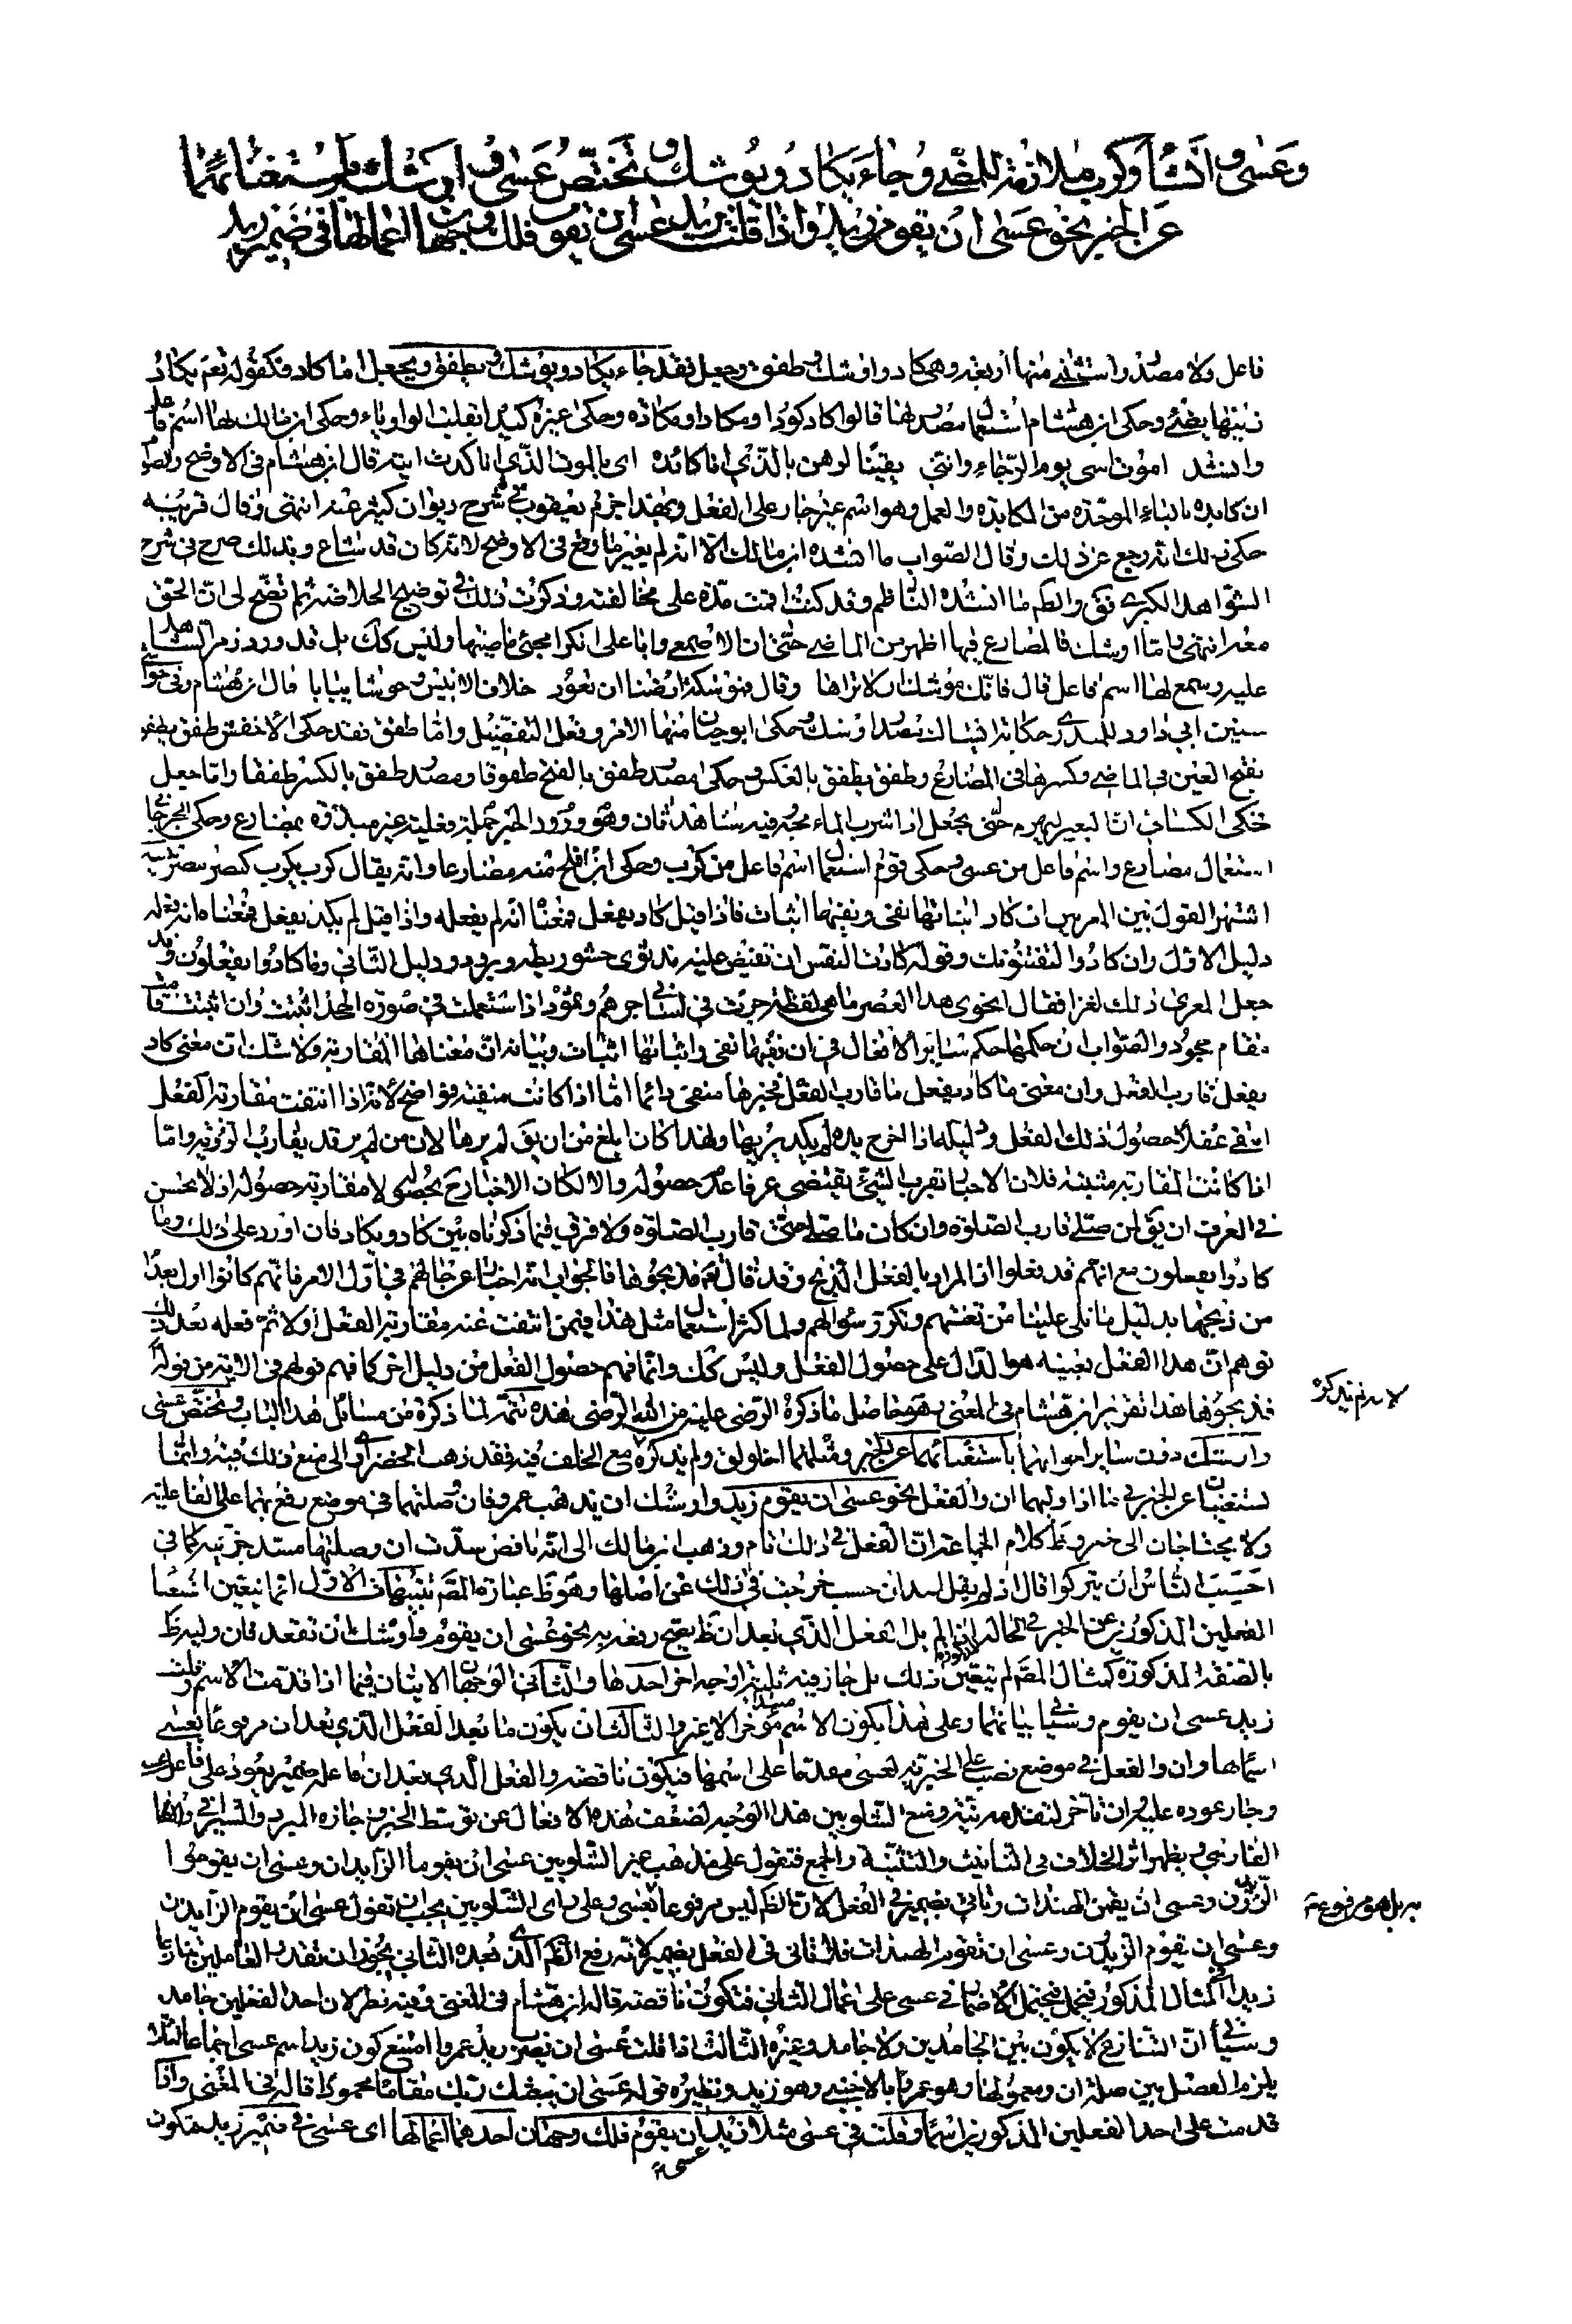 وعسى وانشأ وكرب ملازمة للمضي وجاء يكاد ويوشك وتختص عسى واوشك باستغنائهما
عن الخبر نحو عسى ان يقوم زيد واذا قلت زيد عسى ان يقوم فلك وجهان اعمالها في ضمير زيد
فاعل ولا مصدر واستثنى منها اربعة وهي كاد واوشك وطفق وجعل فقد جاء يكاد ويوشك ويطفق ويجعل اما كاد فكقوله تعم يكاد
زيتها يضئ وحكى ابن هشام استعمال مصدر لها قالوا كاد كودا ومكادا ومكادة وحكى غيره كيدا بقلب الواو ياء وحكى ابن مالك لها اسم فاعل
وانشد اموت اسى يوم الرجاء وانني يقينا لرهن بالذي انا كائد اى بالموت الذي انا كدت اتيه قال ابن هشام في الاوضح والصواب
ان كابد بالباء الموحدة من المكابدة والعمل وهو اسم غير جار على الفعل وبهذا جزم يعقوب في شرح ديوان كثير عزة انتهى وقال
حكى ذلك انه رجع عن ذلك وقال الصواب ما انشده ابن مالك الا انه لم يغير ما وقع في الاوضح لانه كان قد شاع وبذلك صرح في شرح
الشواهد الكبرى فق والظم ما انشده الناظم وقد كنت اقمت مدة على مخالفته وذكرت ذلك في توضيح الخلاصة ثم اتضح لي ان الحق
معه انتهى واما اوشك فالمضارع فيها اظهر من الماضي حتى ان الاصمعي وابا على انكرا مجئ ماضيها وليس كك بل قد ورد ومر الشاهد
عليه وسمع لها اسم فاعل قال فانك موشك ان لا تراها وقال فموشكة ارضنا ان تعود خلاف الانيس وحوشا يبابا قال ابن هشام وفي حواشي
سنن ابي داود حكى ابو حيان منها الامر وفعل التفضيل واما طفق فقد حكى الاخفش طفق يطفق
بفتح العين في الماضي وكسرها في المضارع وطفق يطفق بالعكس وحكى مصدر طفق بالفتح طفوقا ومصدر طفق بالكسر طفقا واما جعل
فحكى الكسائي ان البعير ليهرم حتى يجعل اذا شرب الماء مجه وفيه شاهد ثان وهو ورود الخبر جملة فعلية غير مبدوة بمضارع وحكى الجرجاني
استعمال مضارع واسم فاعل من عسى وحكى قوم استعمال اسم فاعل من كرب وحكى ابن افلح منه مضارعا وانه يقال كرب يكرب كنصر ينصر
اشتهر القول بين المعربين ان كاد اثباتها نفى ونفيها اثبات فاذا قيل كاد يفعل فمعناه انه لم يفعله واذا قيل لم يكد يفعل فمعناه انه فعله
دليل الاول وان كادوا ليفتنونك وقوله كادت النفس ان تفيض عليه مذ ثوى حشو ريطة وبرود ودليل الثاني وما كادوا يفعلون وقد
جعل المعري ذلك لغزا فقال انحوي هذا العصر ما هي لفظة جرت في لساني جرهم وثمود اذا استعملت في صورة الجحد اثبتت وان اثبتت قامت
مقام جحود والصواب ان حكمها حكم سائر الافعال في ان نفيها نفى واثباتها اثبات وبيانه ان معناها المقاربة ولا شك ان معنى كاد
يفعل قارب الفعل وان معنى ما كاد يفعل ما قارب الفعل فخبرها منفى دائما اما اذا كانت منفية فواضح لانه اذا انتفت مقاربة الفعل
انتفى عقلا حصول ذلك الفعل ودليله اذا اخرج يده لم يكد يريها ولهذا كان ابلغ من ان يق لم يرها لان من لم ير قد يقارب الرؤية واما
اذا كانت المقاربة مثبتة فلان الاخبار بقرب الشئ يقتضى عرفا عدم حصوله والا لكان الاخبار ح بحصوله لا مقاربة حصوله اذ لا يحسن
في العرف ان يق لمن صلى قارب الصلوة وان كان ما صلى حتى قارب الصلوة ولا فرق فيما ذكرناه بين كاد ويكاد فان اورد على ذلك وما
كادوا يفعلون مع انهم قد فعلوا اذ المراد بالفعل الذبح وقد قال تعم فذبحوها فالجواب انه اخبار عن حالهم في اول الامر فانهم كانوا اولا بعداء
من ذبحها بدليل ما تلى علينا من تعنتهم وتكرر سؤالهم ولما كثر استعمال مثل هذا فيمن انتفت عنه مقاربة الفعل اولا ثم فعله بعد ذلك
توهم ان هذا الفعل بعينه هو الدال على حصول الفعل وليس كك وانما فهم حصول الفعل من دليل اخر كما فهم في الاية من قوله
فذبحوها هذا تقرير ابن هشام في المغنى وهو حاصل ما ذكره الرضى عليه من الله الرضى هذه تتمة لما ذكره من مسائل هذا الباب وتختص عسى
واوشك دون سائر اخواتهما باستغنائهما عن الخبر ومثلهما اخلولق ولم يذكره مع الخلف فيه فقد ذهب الخضراوي الى منع ذلك فيه وانما
تستغنيان عن الخبر في ما اذا وليهما ان والفعل نحو عسى ان يقوم زيد واوشك ان يذهب عمرو فان وصلتها في موضع رفع بهما على الفاعلية
ولا يحتاجان الى خبر وظ كلام الجماعة ان الفعل في ذلك تام وذهب ابن مالك الى انه ناقص سدت ان وصلتها مسد جزئيه كما في
احسب الناس ان يتركوا قال اذ لم يقل احد ان حسب خرجت في ذلك عن اصلها وهو ظ عبارة المصم تنبيهان الاول انما يتعين استغناء
الفعلين المذكورين عن الخبر في الحالة المذكورة اذا لم يل الفعل الذي بعد ان ظ يصح رفعه به نحو عسى ان يقوم واوشك ان تقعد فان وليه ظ
بالصفة المذكورة كمثال المصم لم يتعين ذلك بل جاز فيه ثلثة اوجه اخر احدها والثاني الوجهان الاتيان فيما اذا قدمت الاسم وقلت
زيد عسى ان يقوم وسيأتي بيانهما وعلى هذا يكون الاسم مبتدأ مؤخرا لا غير والثالث ان يكون ما بعد الفعل الذي بعد ان مرفوعا بعسى
اسما لها وان والفعل في موضع نصب على الخبرية لعسى مقدما على اسمها فيكون ناقصة والفعل الذي بعد ان فاعله ضمير يعود على فاعل عسى
وجاز عوده عليه وان تأخر لتقدمه رتبة ومنع الشلوبين هذا الوجه لضعف هذه الافعال عن توسط الخبر واجازه المبرد والسيرافي والفا
الفارسي ويظهر اثر الخلاف في التأنيث والتثنية والجمع فتقول على مذهب غير الشلوبين عسى ان يقوما الزايدان وعسى ان يقوموا
الزيدون وعسى ان يقمن الهندات وتأتي بضمير في الفعل لان الظم ليس مرفوعا بعسى وعلى رأى الشلوبين يجب ان تقول عسى ان يقوم الزايدان
وعسى ان يقوم الزيدون وعسى ان تقوم الهندات فلا تأتي في الفعل بضمير لانه رفع الظم الذي بعده الثاني يجوز ان تقدر العاملين تنازعا
زيدا في المثال المذكور فيحتمل الاضمار في عسى على اعمال الثاني فتكون ناقصة قاله ابن هشام في المغنى وفيه نظر لان احد الفعلين جامد
وسيأتي ان التنازع لا يكون بين الجامدين ولا جامد وغيره الثالث اذا قلت عسى ان يضرب زيد عمروا امتنع كون زيد اسم عسى اجماعا لئلا
يلزم الفصل بين صلة ان ومعمولها وهو عمروا بالاجنبي وهو زيد ونظيره قوله عسى ان يبعثك ربك مقاما محمودا قاله في المغنى واذا
قدمت على احد الفعلين المذكورين اسما وقلت في عسى مثلا زيد عسى ان يقوم فلك وجهان احدهما اعمالها اى عسى في ضمير زيد فتكون